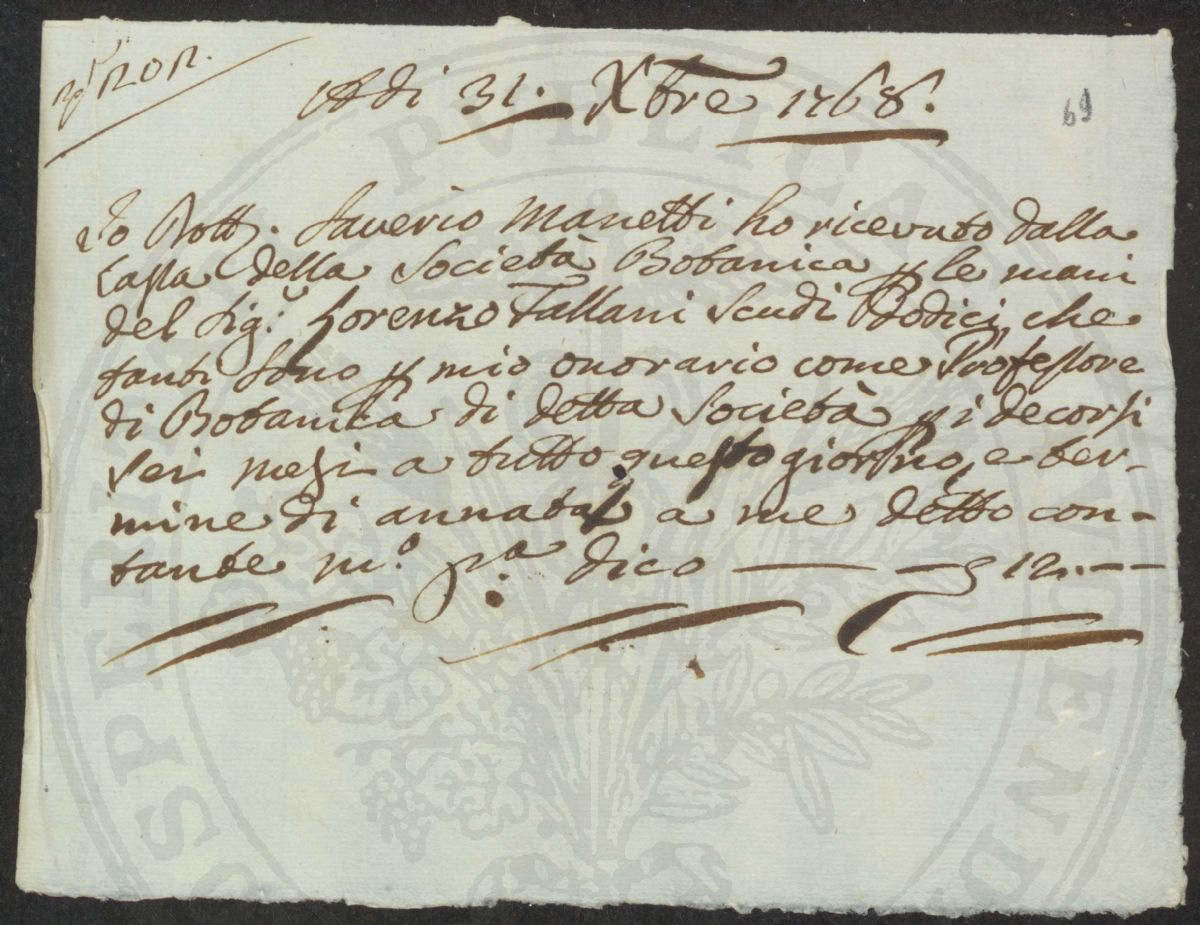 Adi 31. Xbre 1768.
69
Io Dott. Saverio Manetti ho ricevuto dalla
Cassa della Società Botanica p le mani
del Sig.r Lorenzo Tallani Scudi Dodici, che
tanti sono p mio onorario come Professore
di Botanica di detta Società p i decorsi
sei mesi a tutto questo giorno, e ter-
mine di annata, a me detto con-
tante m.o p.a dico — — 12. — —
PVBLICAE
PROSPERITATI